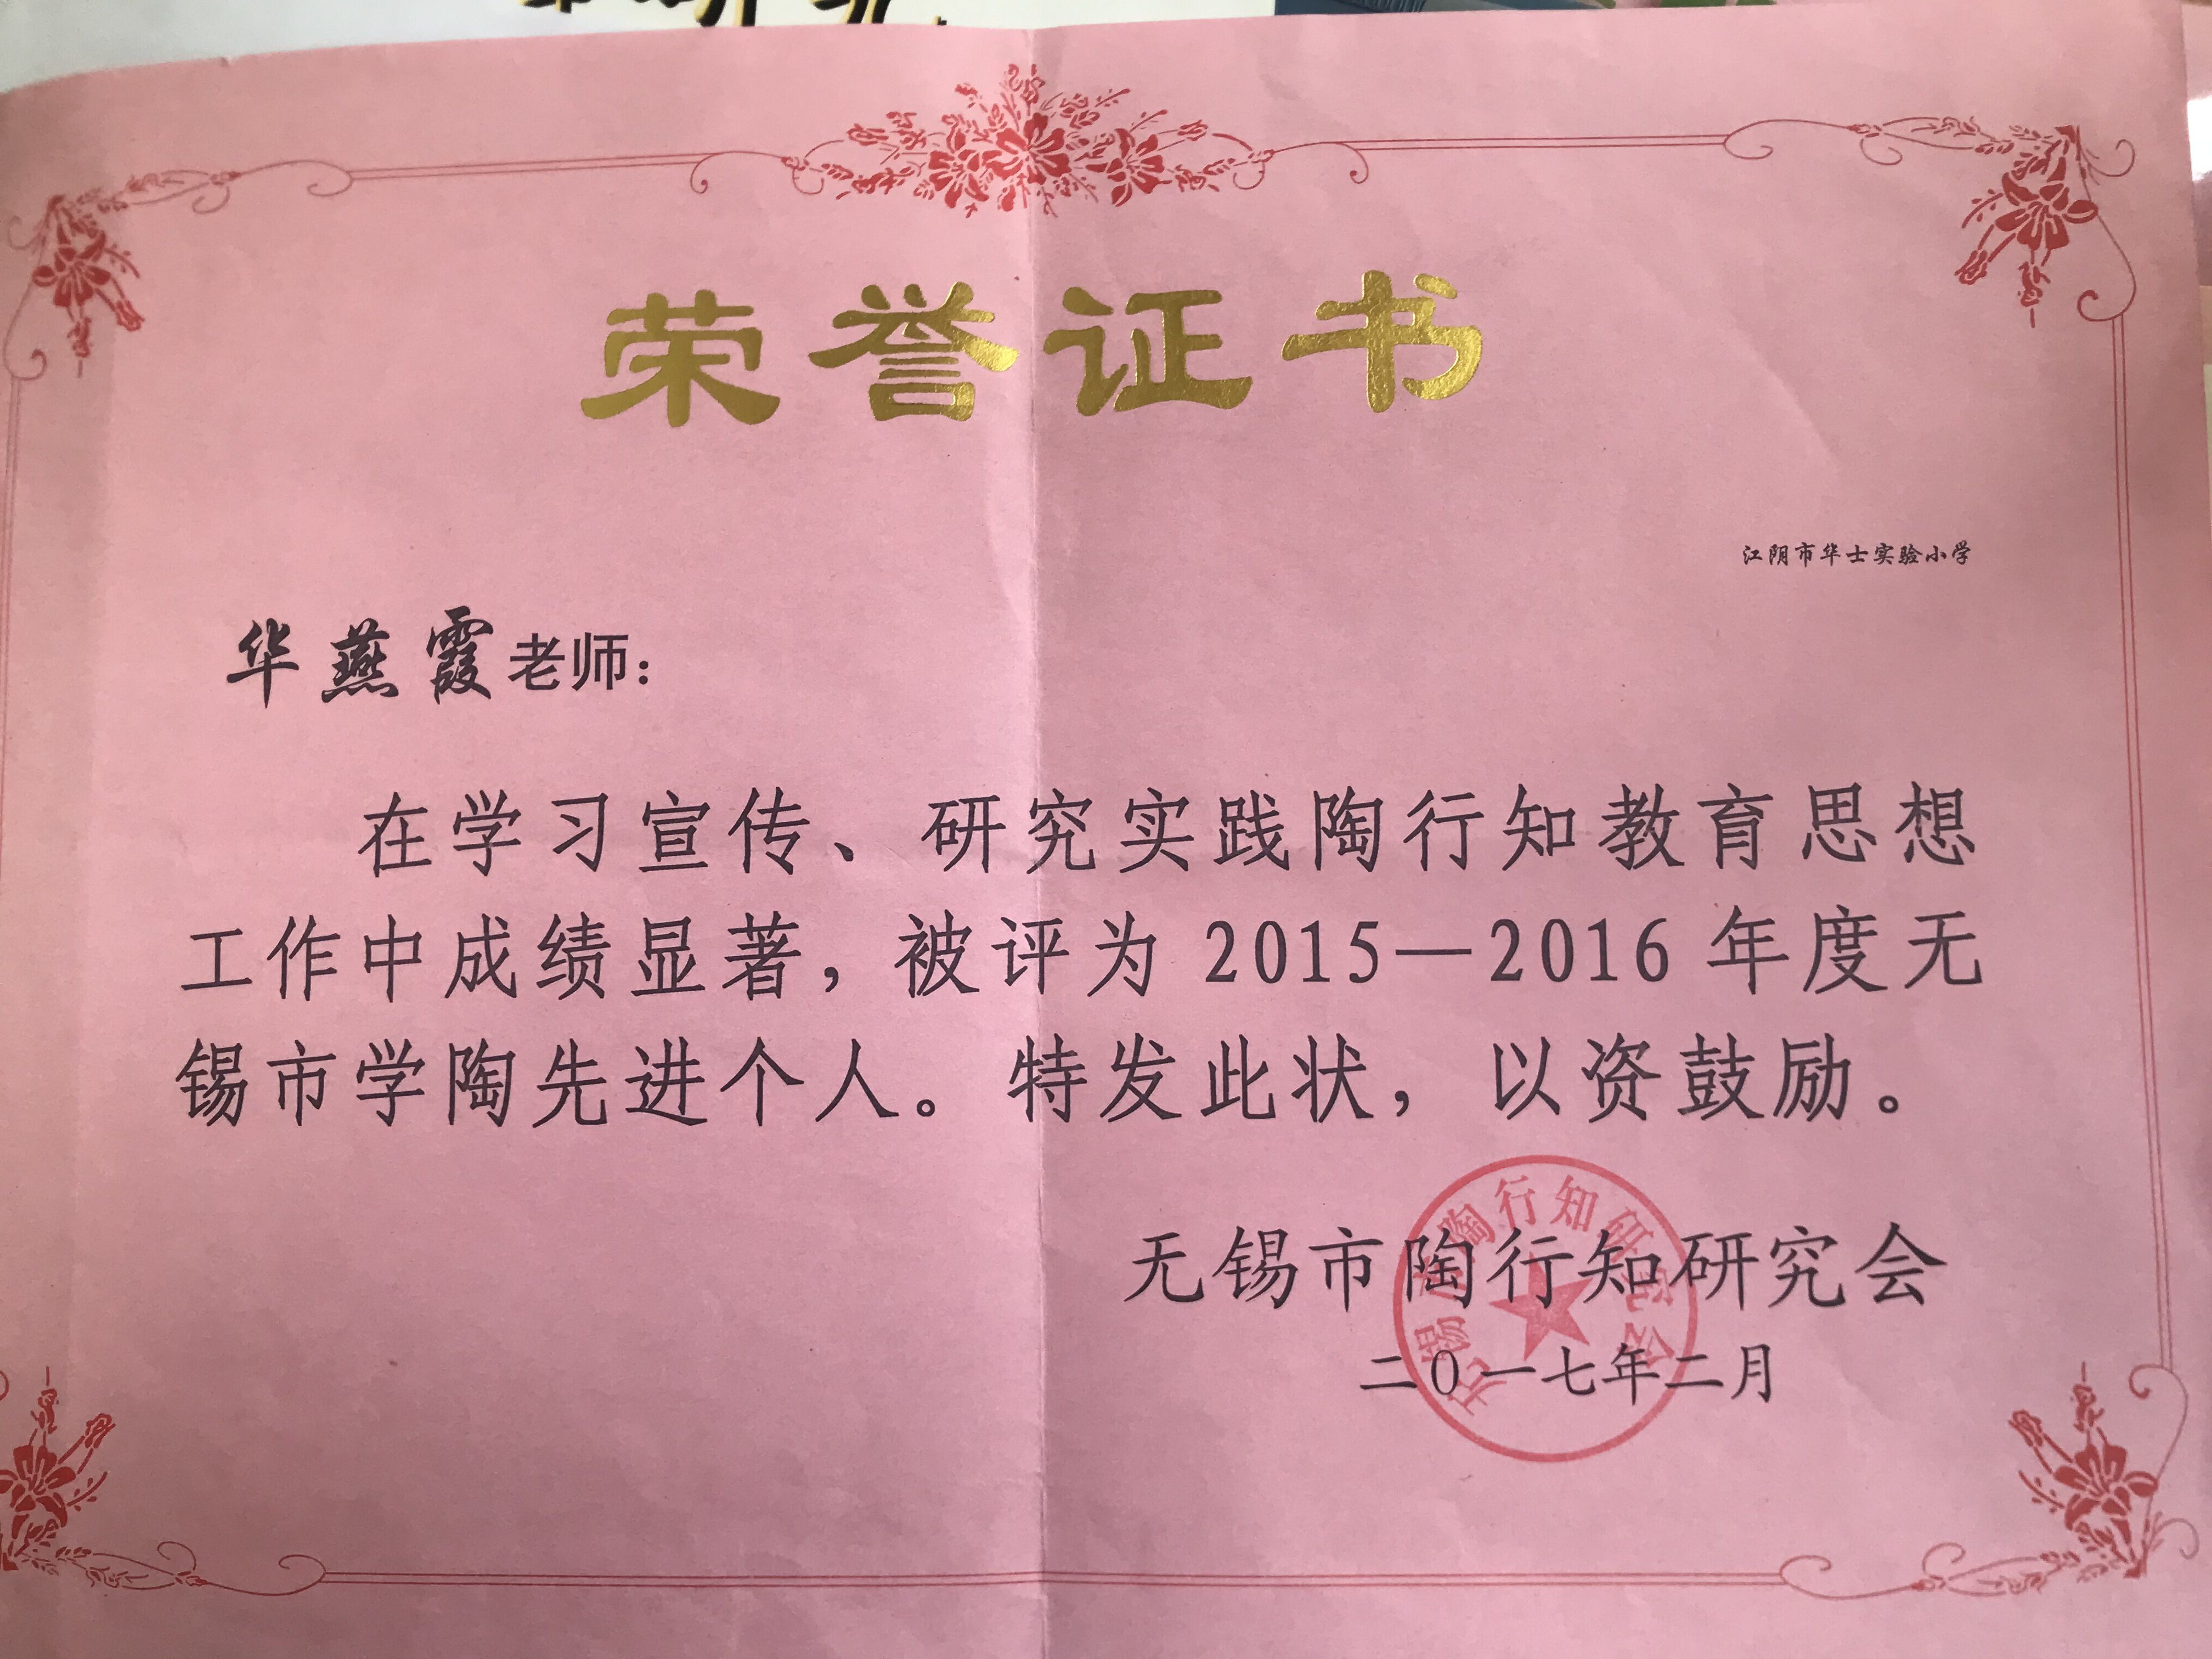 荣誉证书
江阴市华士实验小学
华燕霞老师：
在学习宣传、研究实践陶行知教育思想
工作中成绩显著，被评为 2015—2016 年度无
锡市学陶先进个人。特发此状，以资鼓励。
无锡市陶行知研究会
二〇一七年二月
无锡市陶行知研究会